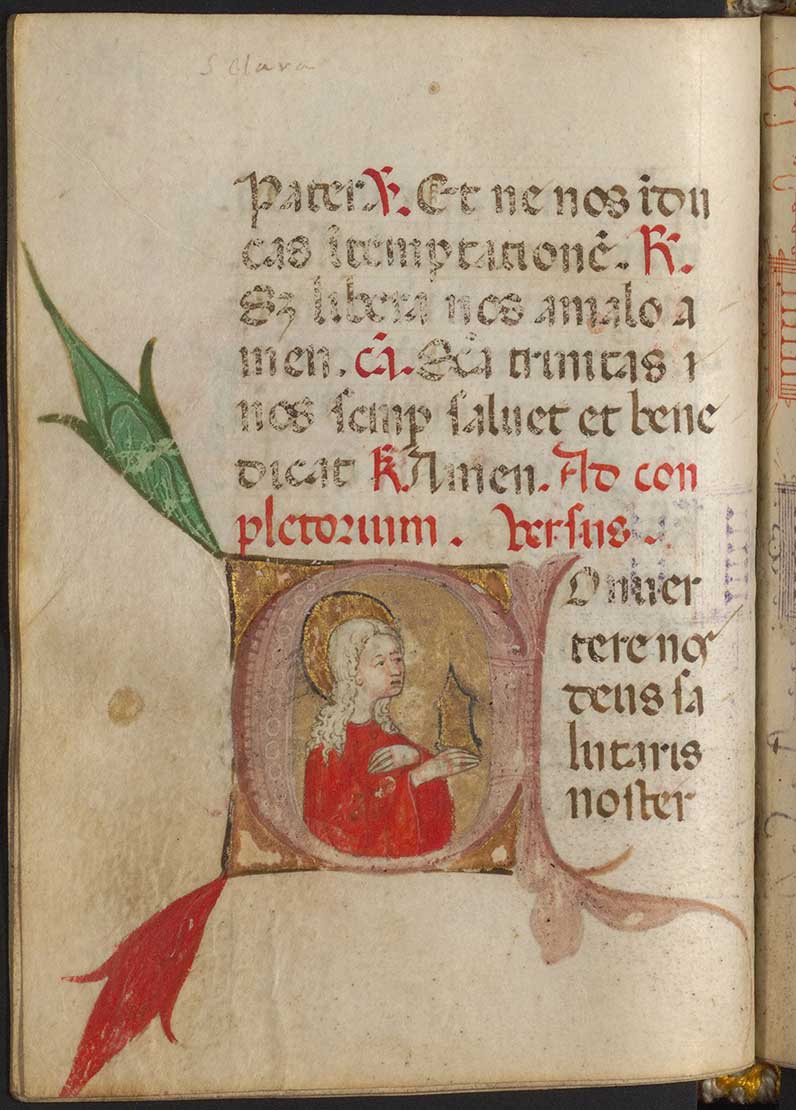 S Clara
Pater. V̄. Et ne nos īdu
cas ītemptationē. R̄.
Sꝫ libera nos amalo a
men. c̄a. Sc̄a trinitas i
nos semp saluet et bene
dicat R̄. Amen. Ad con
pletorium. Versus.
Conuer
tere nos
deus sa
lutaris
noster